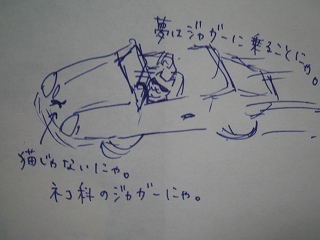 夢はジャガーに乗ることにゃ。
猫じゃないにゃ。
ネコ科のジャガーにゃ。